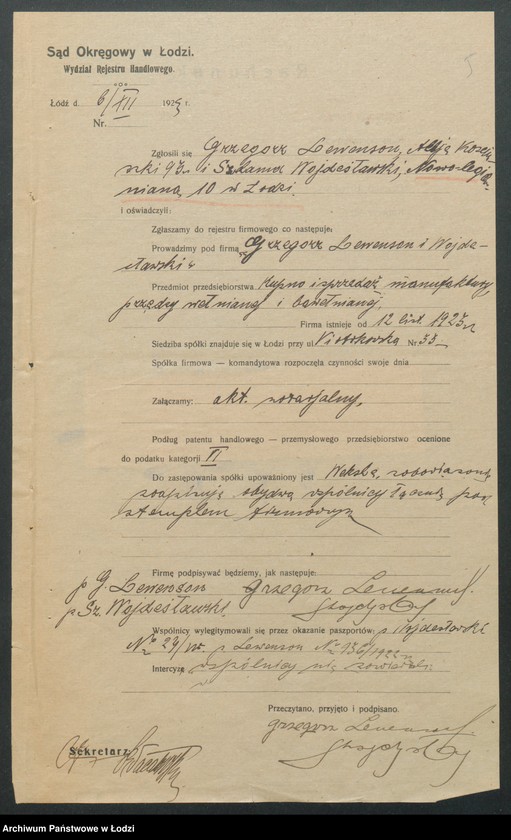 5
Sąd Okręgowy w Łodzi.
Wydział Rejestru Handlowego.
Łódź d. 6/XII 1923 r.
Nr.
Zgłosili się Grzegorz Lewenson, Aleja Kościu
szki 93 i Szlama Wojdesławski, Nowo-Cegiel-
niana 10 w Łodzi.
i oświadczyli:
Zgłaszamy do rejestru firmowego co następuje:
Prowadzimy pod firmą „Grzegorz Lewenson i Wojde-
sławski"
Przedmiot przedsiębiorstwa kupno i sprzedaż manufaktury,
przędzy wełnianej i bawełnianej,
Firma istnieje od 12 list. 1923 r.
Siedziba spółki znajduje się w Łodzi przy ul. Piotrkowska Nr. 33
Spółka firmowa — komandytowa rozpoczęła czynności swoje dnia
Załączamy: akt notarjalny,
Podług patentu handlowego — przemysłowego przedsiębiorstwo ocenione
do podatku kategorji II
Do zastępowania spółki upoważniony jest Weksle, zobowiązania
obydwa wspólnicy łącznie pod
stemplem firmowym
Firmę podpisywać będziemy, jak następuje:
p G. Lewenson Grzegorz Lewenson
p Sz. Wojdesławski.
Wspólnicy wylegitymowali się przez okazanie paszportów: p Wojdesławski
p Lewenson № 936/1922 r.
Intercyzę wspólnicy nie zawierali
Przeczytano, przyjęto i podpisano.
Grzegorz Lewenson
Sekretarz
Archiwum Państwowe w Łodzi